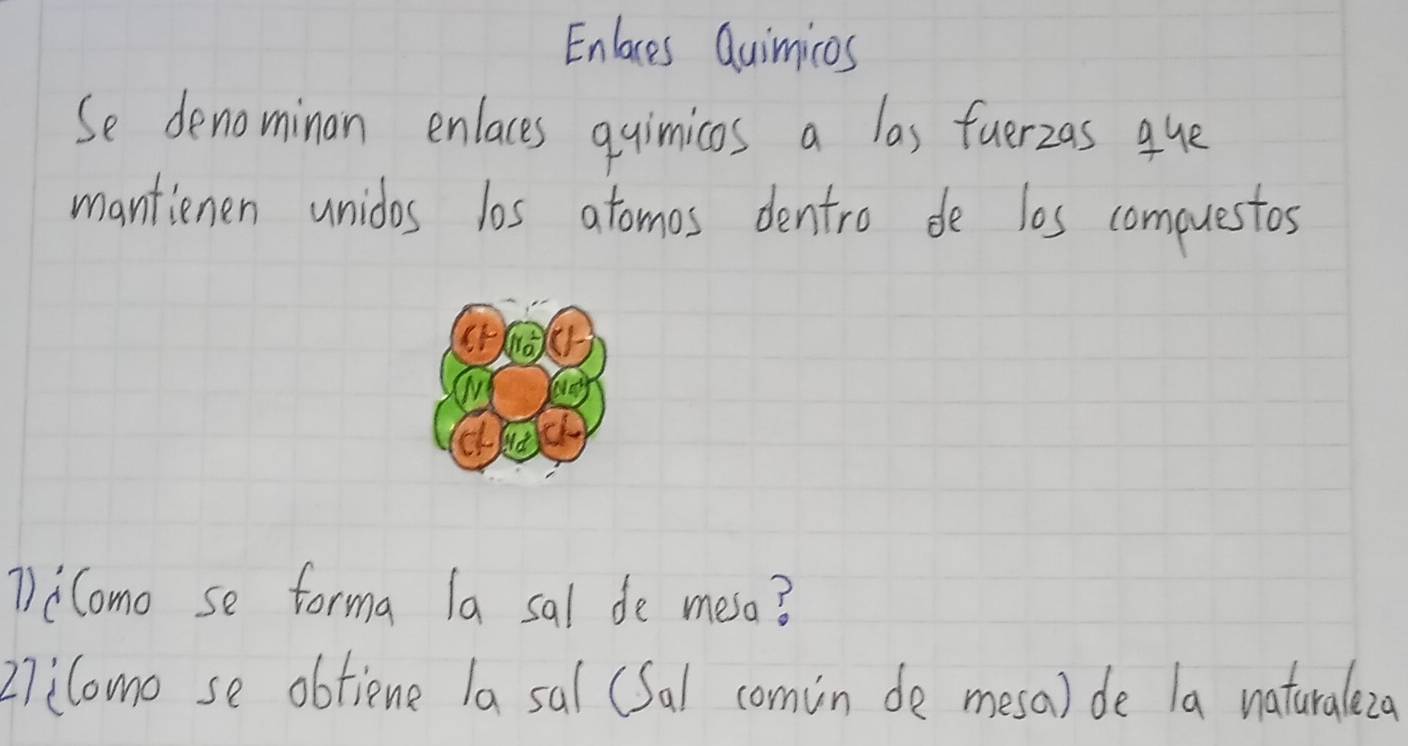 Enlaces Quimicos
Se denominan enlaces quimicos a las fuerzas que
mantienen unidos los atomos dentro de los compuestos
Cl- Na+ Cl-
N Na+
Cl- Na+ Cl-
1) ¿Como se forma la sal de mesa?
2) ¿Como se obtiene la sal (Sal común de mesa) de la naturaleza